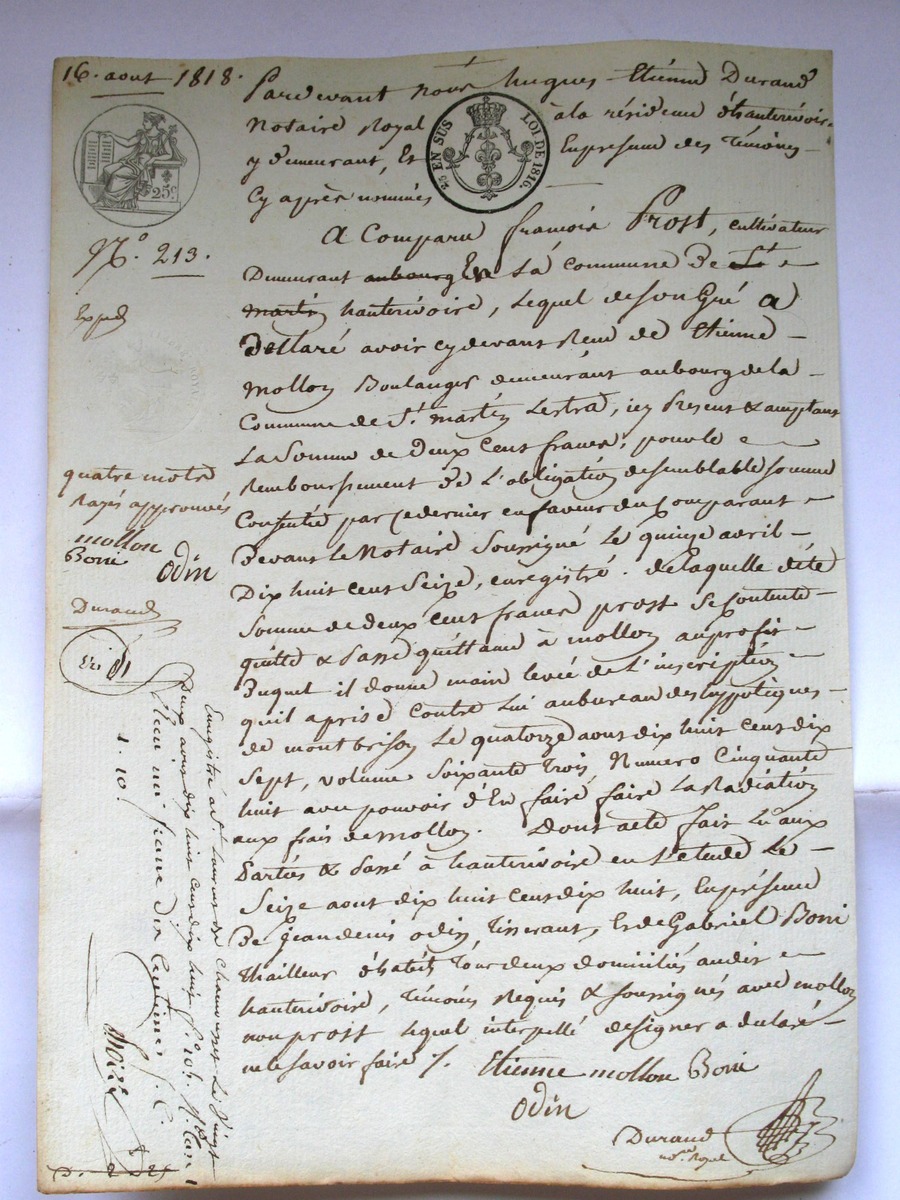 16. aout 1818.
Pardevant nous hugues Etienne Durand
Notaire Royal à la résidence d'hauterivoire
y demeurant, Et En presence des Témoins
Cy après nommés
25 EN SUS LOI DE 1816
25c
N.o 213.
Expd
A Comparu francois Prost, cultivateur
Demeurant aubourg En La commune De St
martin hauterivoire, Lequel de son Gré a
Dellaré avoir cy devant Recu de Etienne
mollon Boulanger demeurant au bourg de la
Commune de St. martin Lestra, icy Present & acceptant
La Somme de Deux Cent francs, pour le
Remboursement De L'obligation de semblable somme
Consentie par ce dernier en faveur du Comparant
Devant Le Notaire Soussigné Le quinze avril
Dix huit Cent Seize, enregistré. De laquelle dite
Somme de deux Cent francs prost se Contente
quitte & Passe quittance à mollon au profit
Duquel il donne main levée de L'inscription
qu'il a prise Contre Lui au bureau des hypotiques
de montbrison Le quatorze aout dix huit Cent dix
Sept, volume Soixante Trois Numero Cinquante
huit avec pouvoir d'En faire faire La Radiation
aux frais de mollon. Dont acte fait Lu aux
Parties & Passé à hauterivoire en L'etude Le
Seize aout dix huit Cent dix huit, En présence
De Jean denis odin Tisserant, Et de Gabriel Boni
Thailleur d'habit Tous deux domiciliés audit
hauterivoire, Témoins Requis & soussignés avec mollon
non prost lequel interpellé de signer a declaré
ne le savoir faire /.
Etienne mollon Boni
odin
Durand
not. Royal
quatre mots
Rayés approuvés
mollon
Boni odin
Durand
Enregistré à St Laurent de Chamousset Le Vingt
Deux aout dix huit Cent dix huit fo. 104
un franc dix Centimes
1. 10.
D. 2 25